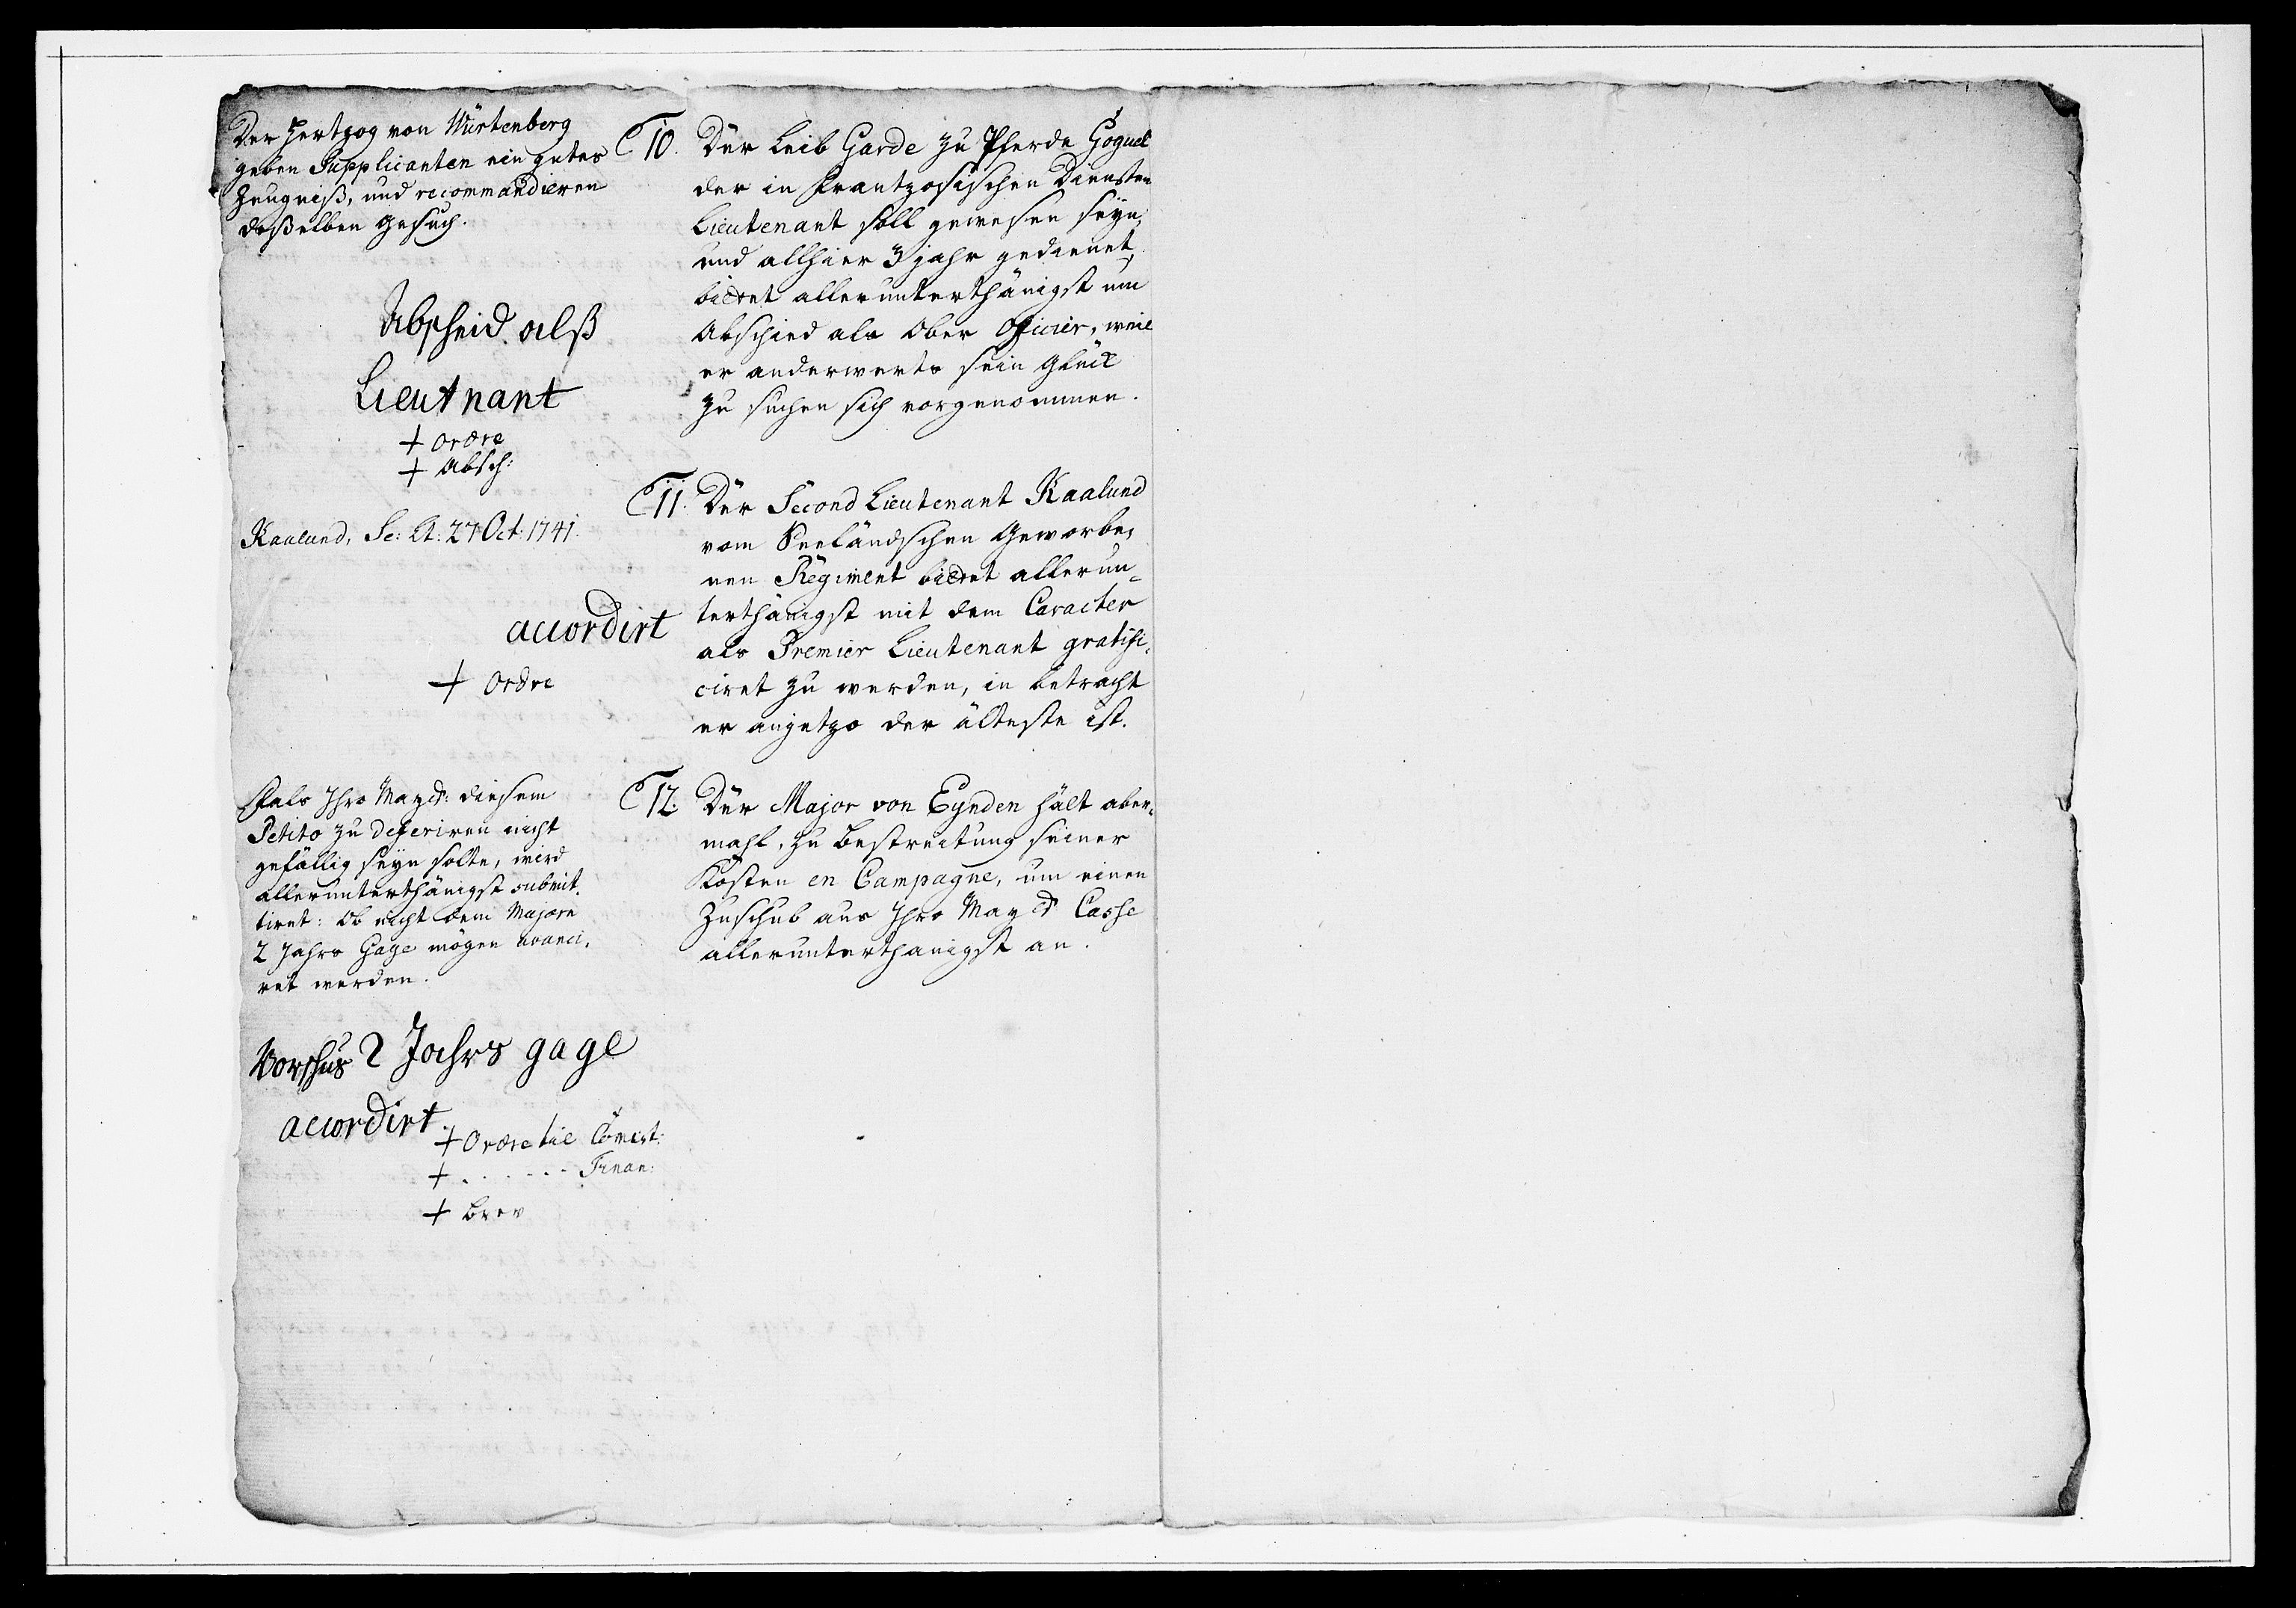 Der Hertzog von Würtenberg
geben Supplicanten ein gutes
Zeugniß, und recommandieren
deßelben Gesuch.
Abscheid alß
Lieutnant
+ Ordre
+ Absch:
10. Der Leib Garde zu Pferde Goguel
der in Frantzosischen Diensten
Lieutenant soll gewesen seyn,
und allhier 3 Jahr gedienet,
bietet allerunterthänigst um
Abschied als Ober Officier, weil
er anderwerts sein Glück
zu suchen sich vorgenommen.
Kaalund, Se: Lt: 27 Oct: 1741.
accordirt
+ Ordre
11. Der Second Lieutenant Kaalund
vom Seeländschen Geworbe,
nen Regiment bietet allerun-
terthänigst mit dem Caracter
als Premier Lieutenant gratifi,
ciret zu werden, in betracht
er anjetzo der älteste ist.
Fals Ihro Mayt: diesem
Petito zu deferiren nicht
gefällig seyn solte, wird
allerunterthänigst submit,
tiret: Ob nicht dem Majorn
2 Jahrs Gage mögen avanci,
ret werden.
Vorschus 2 Jahrs gage
accordirt.
+ Ordre til Comist:
+ . . . . - - - Finan:
+ brev
12. Der Major von Eynden hält aber,
mahl, zu Bestreitung seiner
Kosten en Campagne, um einen
Zuschub aus Ihro Mayt Casse
allerunterthanigst an.